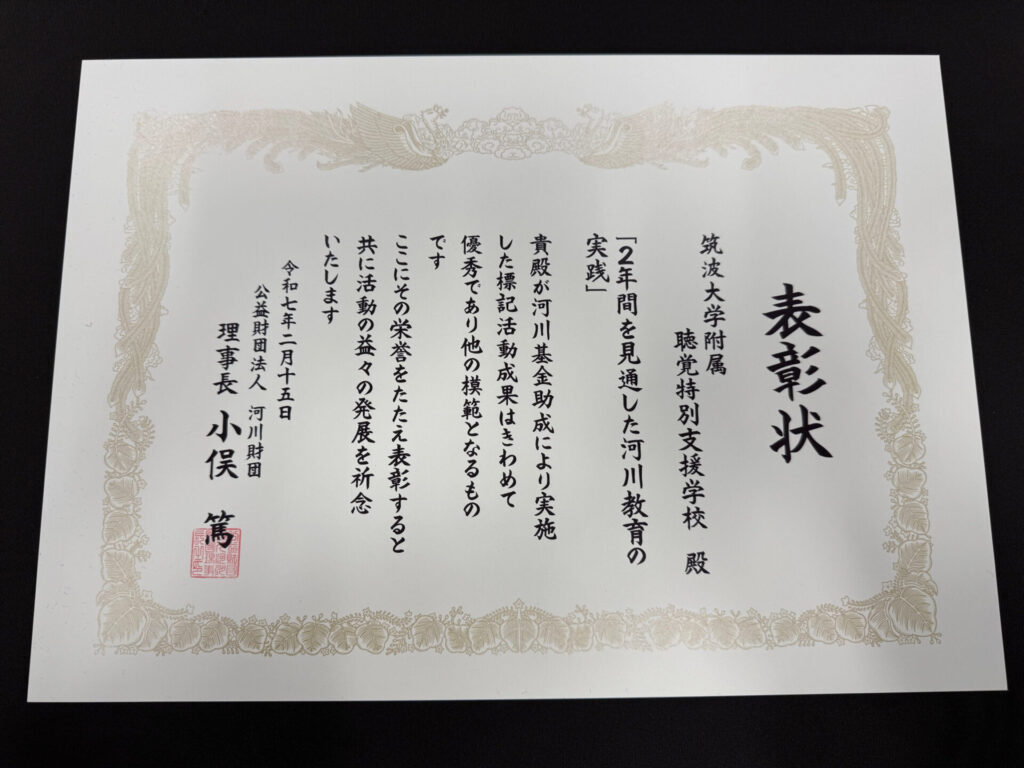 表彰状
筑波大学附属
聴覚特別支援学校 殿
「2年間を見通した河川教育の
実践」
貴殿が河川基金助成により実施
した標記活動成果はきわめて
優秀であり他の模範となるもの
です
ここにその栄誉をたたえ表彰すると
共に活動の益々の発展を祈念
いたします
令和七年二月十五日
公益財団法人 河川財団
理事長 小俣 篤